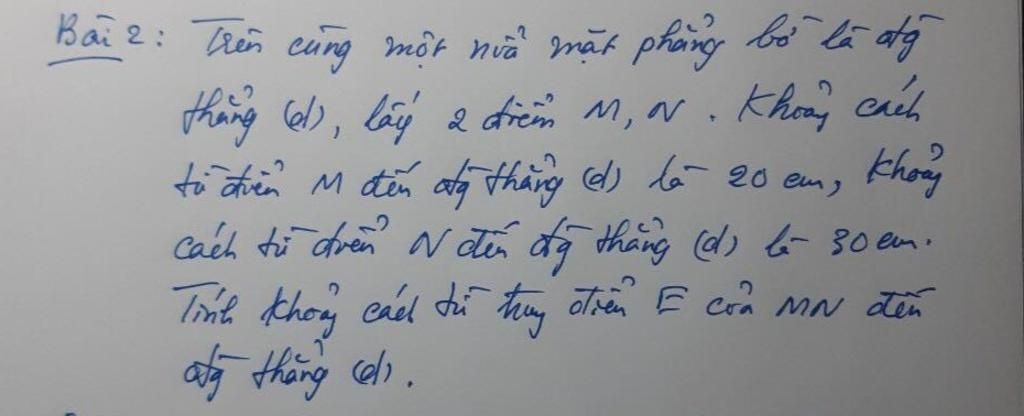 Bài 2: Trên cùng một nửa mặt phẳng bờ là đg
thẳng (d), lấy 2 điểm M, N. Khoảng cách
từ điểm M đến đg thẳng (d) là 20 cm, khoảng
cách từ điểm N đến đg thẳng (d) là 30 cm.
Tính khoảng cách từ trung điểm E của MN đến
đg thẳng (d).